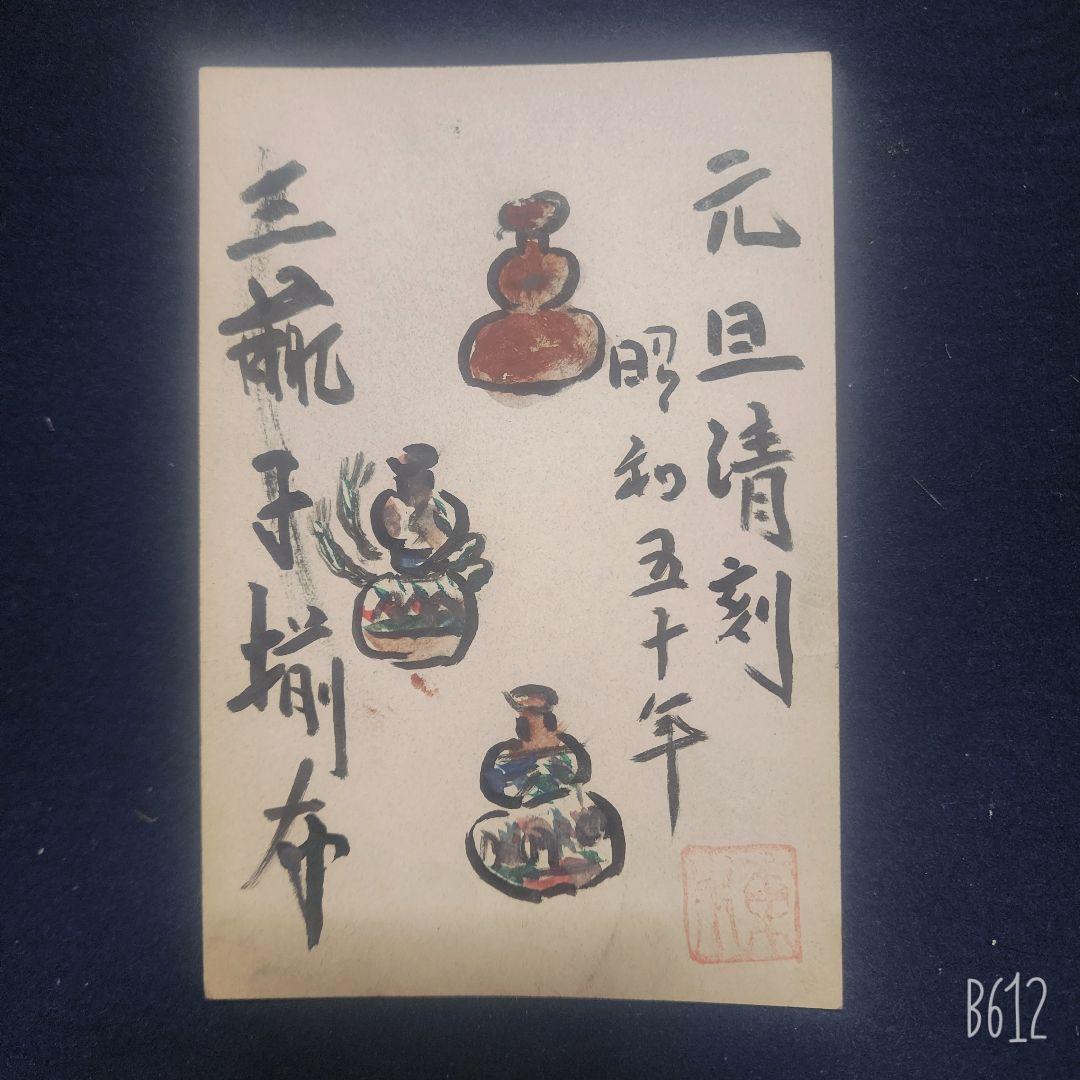 元旦清刻
昭和五十年
三子揃布
B612